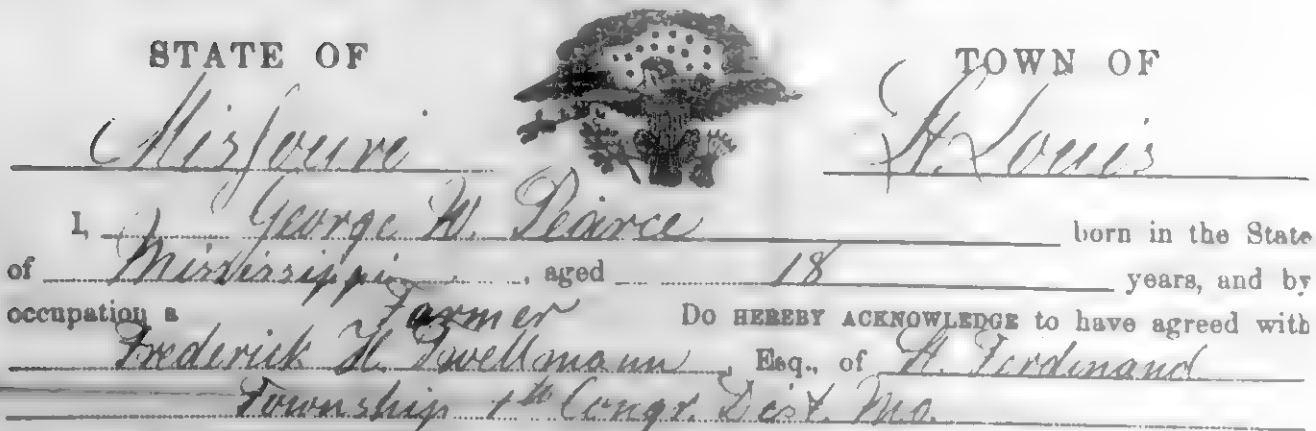 STATE OF TOWN OF
Missouri St. Louis
I, George W. Pearce born in the State
of Mississippi, aged 18 years, and by
occupation a Farmer Do HEREBY ACKNOWLEDGE to have agreed with
Frederick H. Twellmann, Esq., of St. Ferdinand
Township 1th Congr. Dist. Mo.